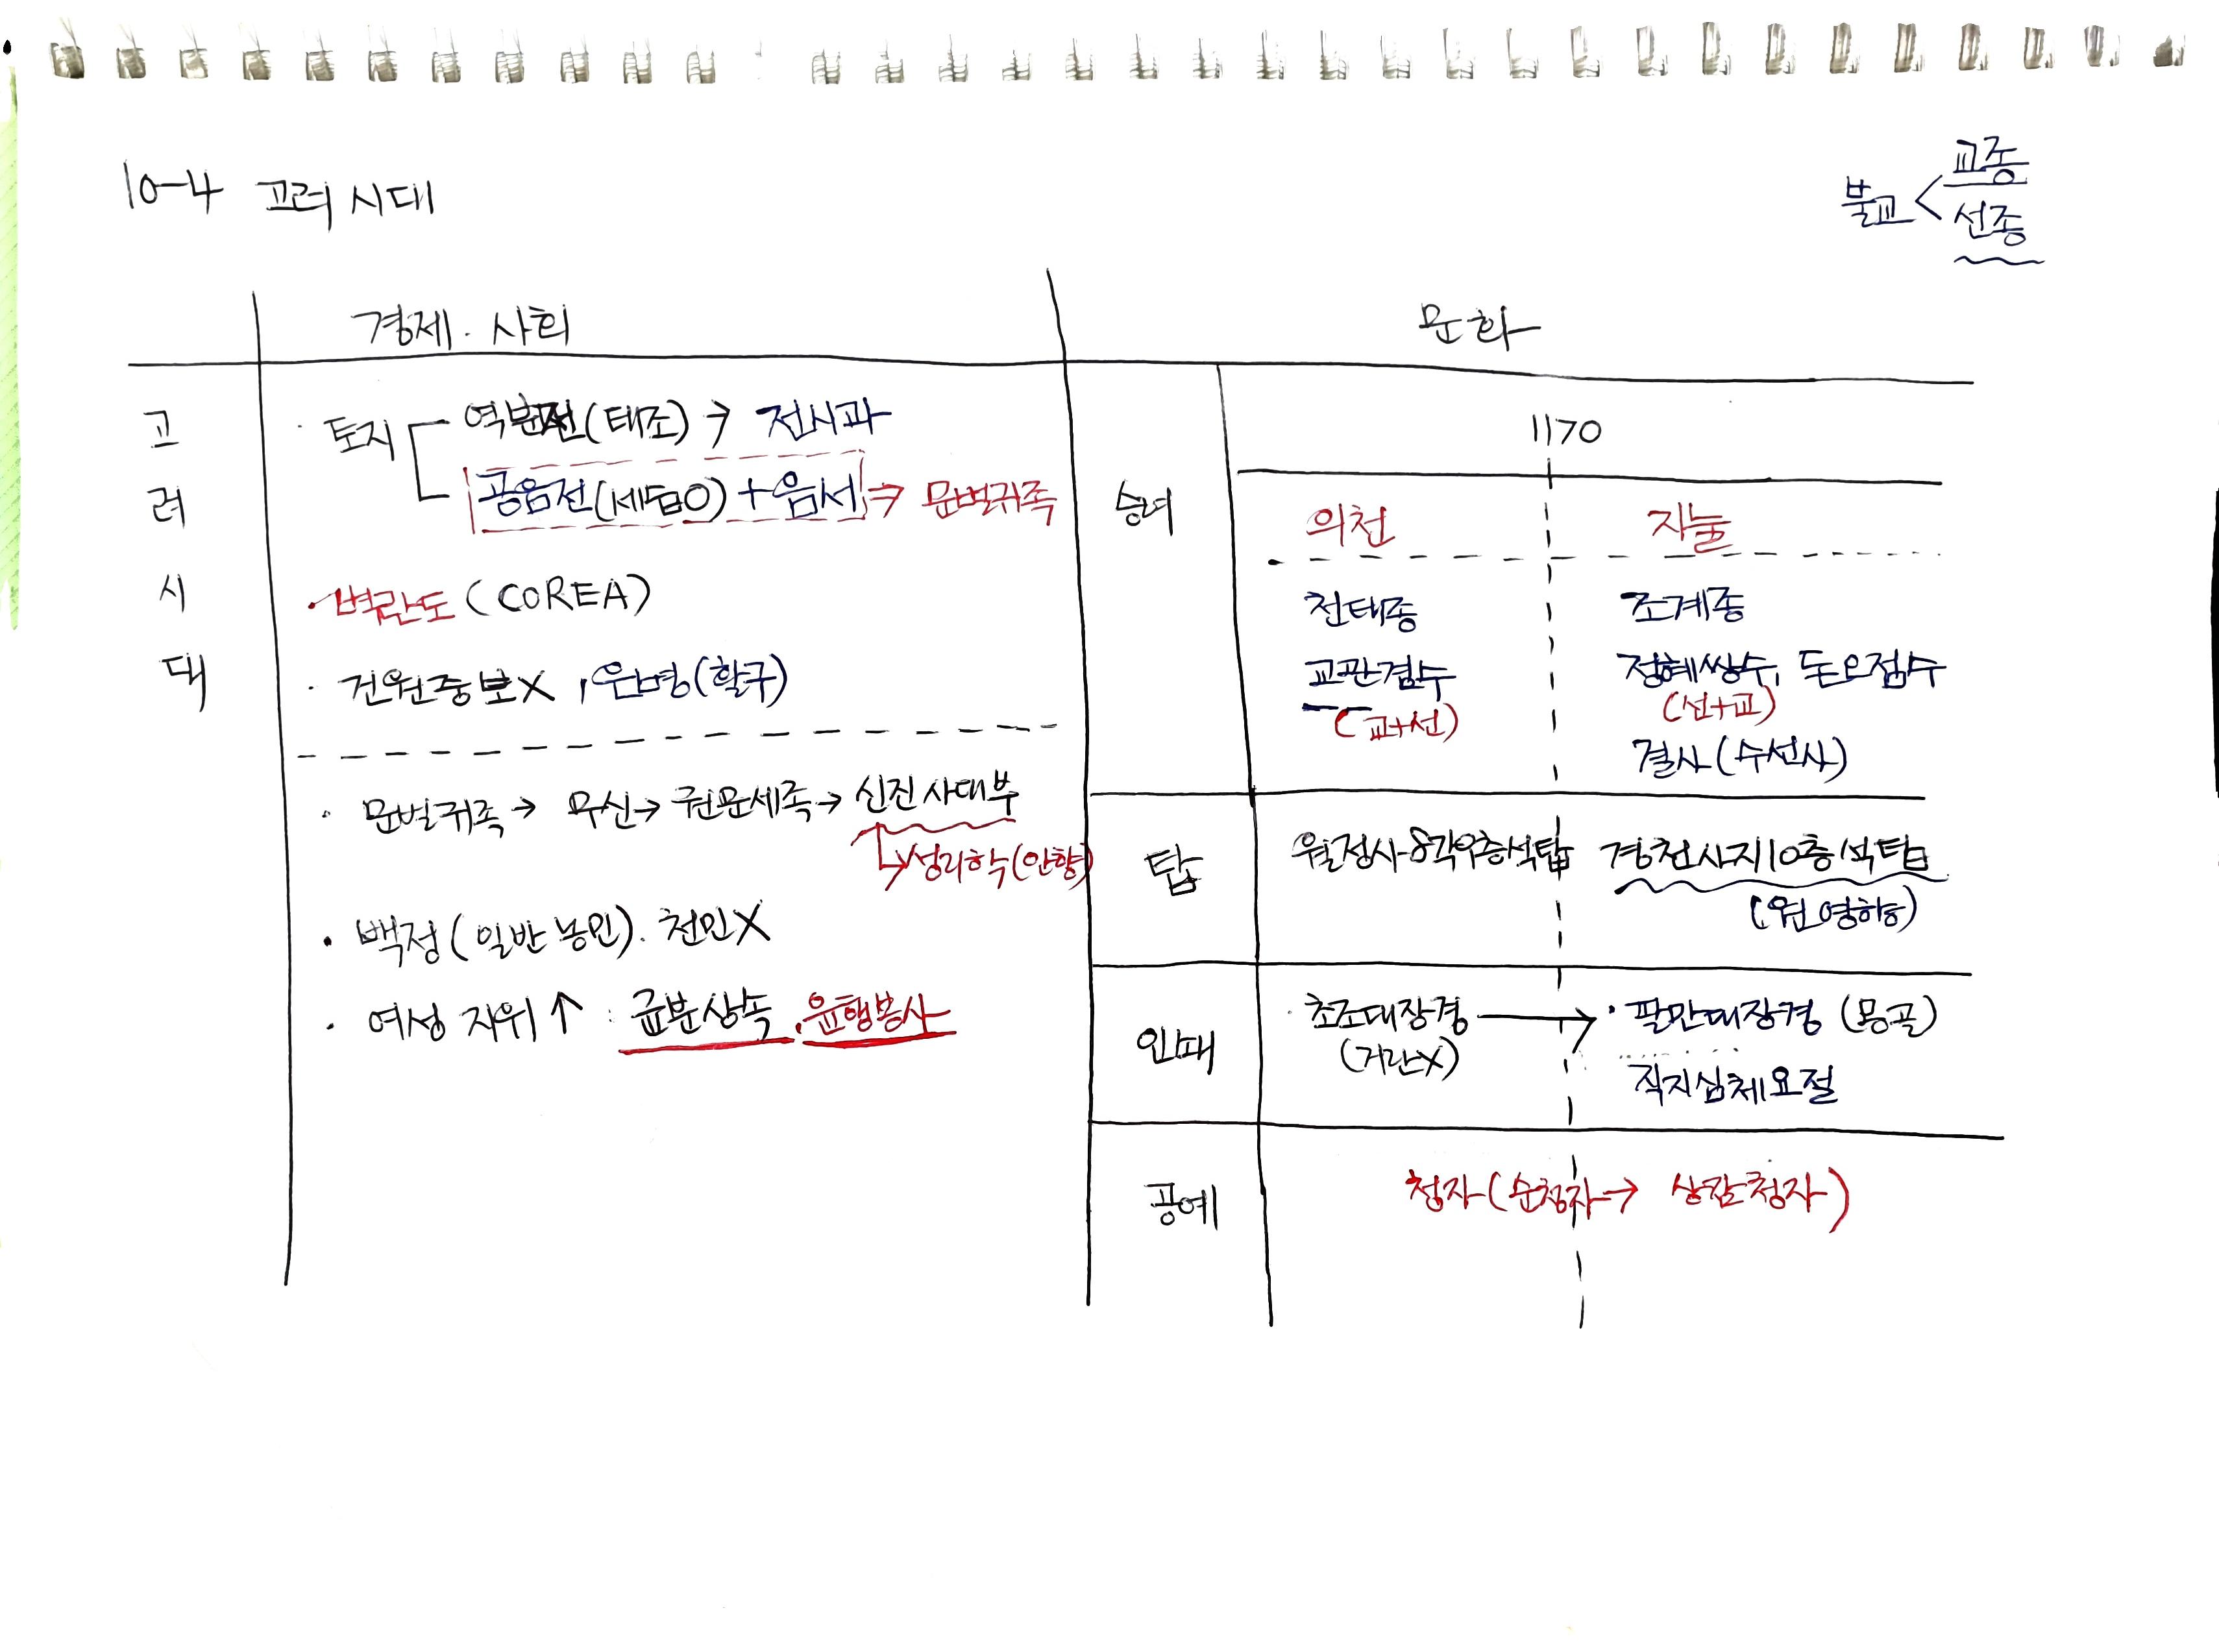 10-4 고려 시대
불교 < 교종
선종
경제·사회
문화
고
려
시
대
· 토지 역분전(태조) → 전시과
공음전(세습O) + 음서 ⇒ 문벌귀족
· 벽란도 (COREA)
· 건원중보X, 은병(활구)
· 문벌귀족 → 무신 → 권문세족 → 신진사대부
↳ 성리학(안향)
· 백정(일반 농민). 천민X
· 여성 지위 ↑ : 균분상속, 윤행봉사
승려
1170
의천
지눌
천태종
조계종
교관겸수
정혜쌍수, 돈오점수
(교+선)
(선+교)
결사(수선사)
탑
월정사 8각9층석탑
경천사지10층석탑
(원 영향)
인쇄
· 초조대장경 → · 팔만대장경 (몽골)
(거란X)
직지심체요절
공예
청자(순청자 → 상감청자)